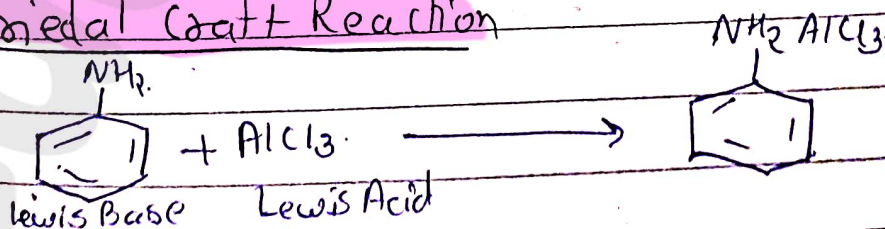 riedal Craft Reaction
NH2. NH2 AlCl3
+ AlCl3.
Lewis Base Lewis Acid